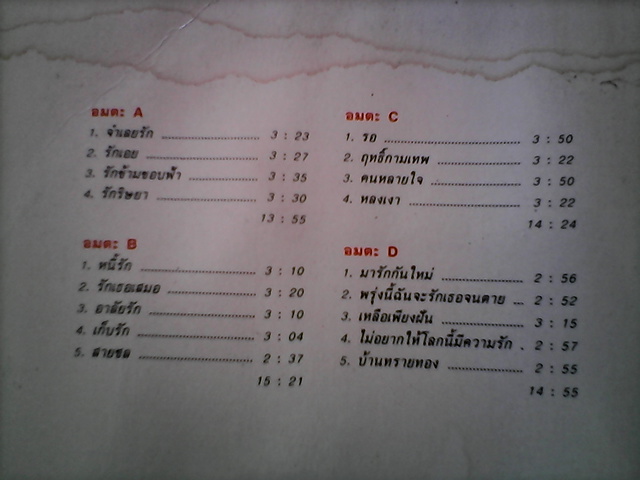 อมตะ A
1. จำเลยรัก 3 : 23
2. รักเอย 3 : 27
3. รักข้ามขอบฟ้า 3 : 35
4. รักริษยา 3 : 30
13 : 55
อมตะ B
1. หนี้รัก 3 : 10
2. รักเธอเสมอ 3 : 20
3. อาลัยรัก 3 : 10
4. เก็บรัก 3 : 04
5. สายชล 2 : 37
15 : 21
อมตะ C
1. รอ 3 : 50
2. ฤทธิ์กามเทพ 3 : 22
3. คนหลายใจ 3 : 50
4. หลงเงา 3 : 22
14 : 24
อมตะ D
1. มารักกันใหม่ 2 : 56
2. พรุ่งนี้ฉันจะรักเธอจนตาย 2 : 52
3. เหลือเพียงฝัน 3 : 15
4. ไม่อยากให้โลกนี้มีความรัก 2 : 57
5. บ้านทรายทอง 2 : 55
14 : 55